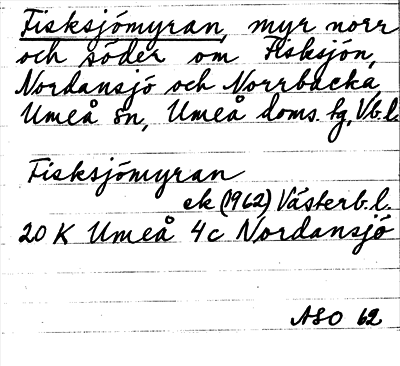 Fisksjömyran, myr norr
och söder om Fisksjön,
Nordansjö och Norrbacka,
Umeå sn, Umeå doms. fg, Vb. l.
Fisksjömyran
ek (1962) Västerb. l.
20 K Umeå 4c Nordansjö
ASO 62